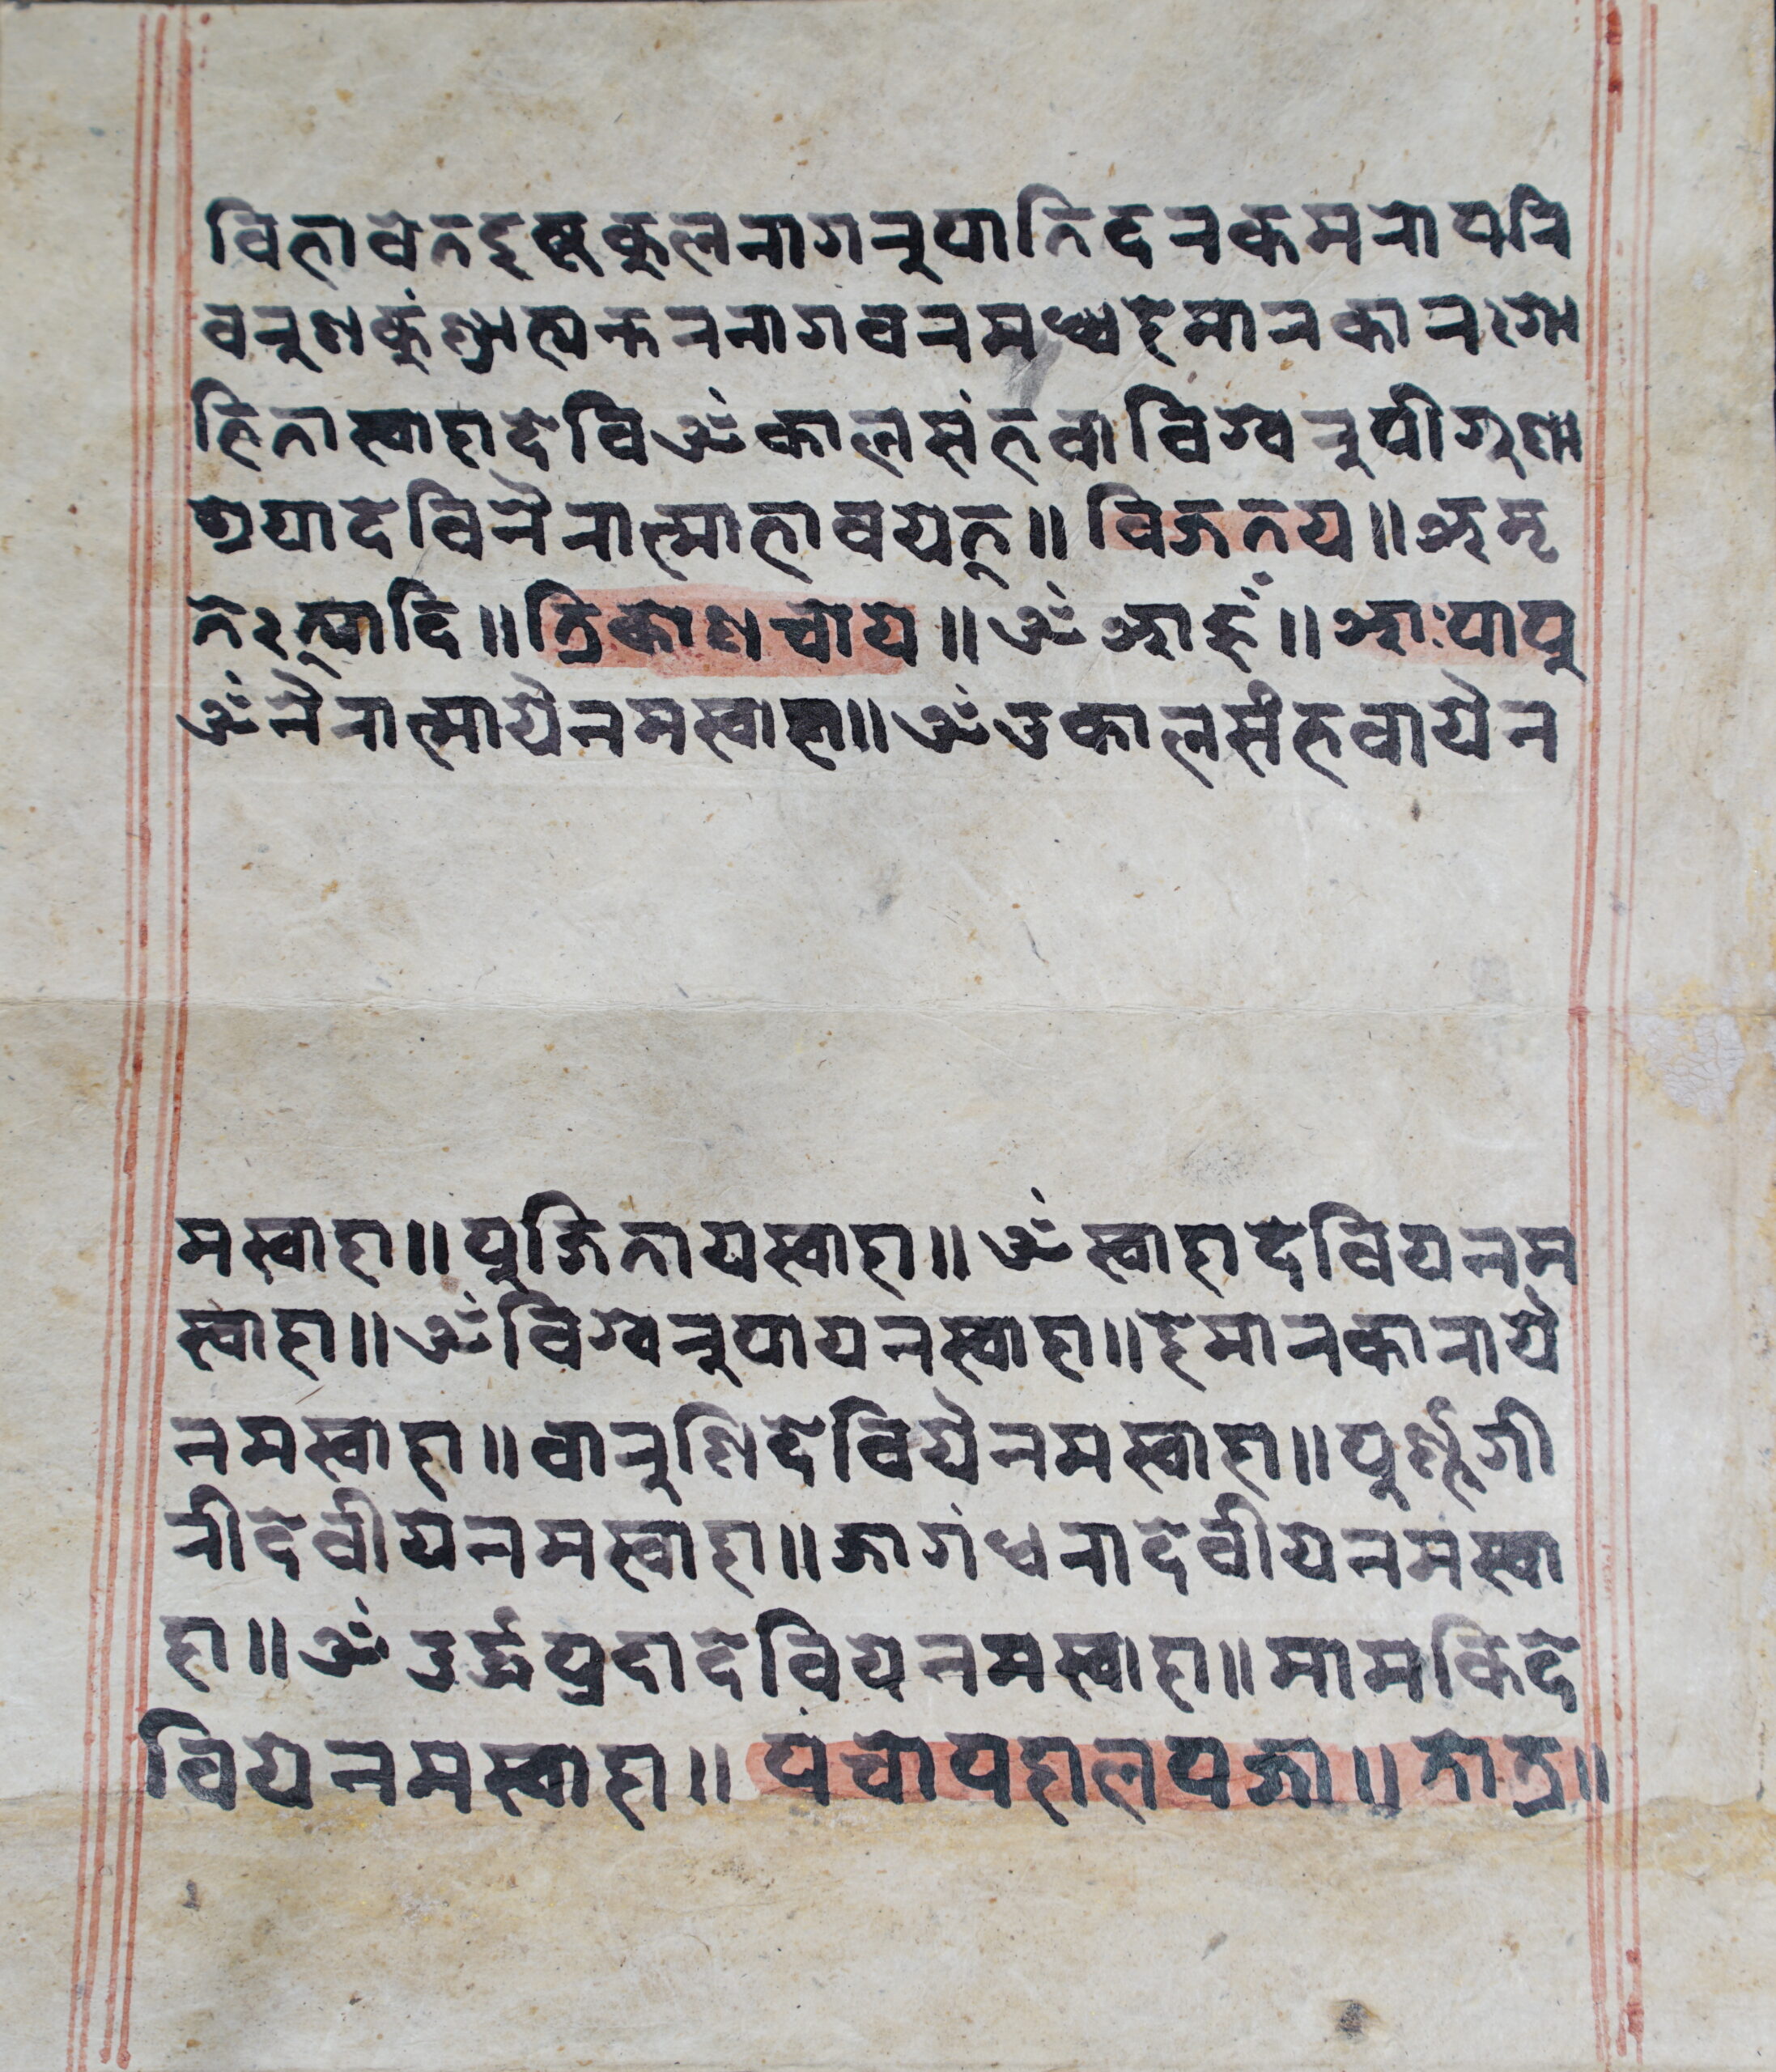 विभावेतदृष्टकुलनागनुपातिदनकमनोपनि
वनुणकुंण्डात्यन्तननागवनमध्यहेमानकानगो
हितास्वाहादेविॐकालसंभवाविश्वनुपीगुणा
त्रयादेविनैनात्माभावयेत्॥ विजनय॥अमृ
ते२त्यादि॥त्रिकोणचोय॥ॐआहूँ॥आःपापु
ॐनैनात्मायैनमस्वाहा॥ॐउकालसंभवायैन
मस्वाहा॥पुजितायस्वाहा॥ॐस्वाहादेवियनम
स्वाहा॥ॐविश्वनुपायनस्वाहा॥हेमानकानायै
नमस्वाहा॥वानुणिदेवियैनमस्वाहा॥पुर्ण्णगी
नीदेवीयेनमस्वाहा॥जागंधनादेवीयेनमस्वा
हा॥ॐउर्द्धप्रदादेवियेनमस्वाहा॥मामकिदे
वियेनमस्वाहा॥पंचोपहालपजा॥तोत्र॥